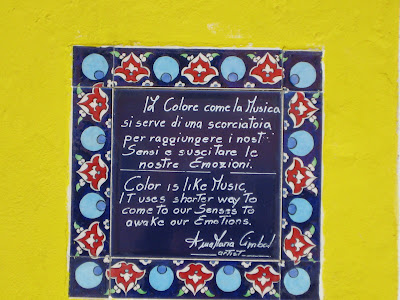 Il Colore come la Musica
si serve di una scorciatoia
per raggiungere i nost
Sensi e suscitare le
nostre Emozioni.
Color is like Music
It uses shorter way to
come to our Senses to
awake our Emotions.
AnnaMaria
artist